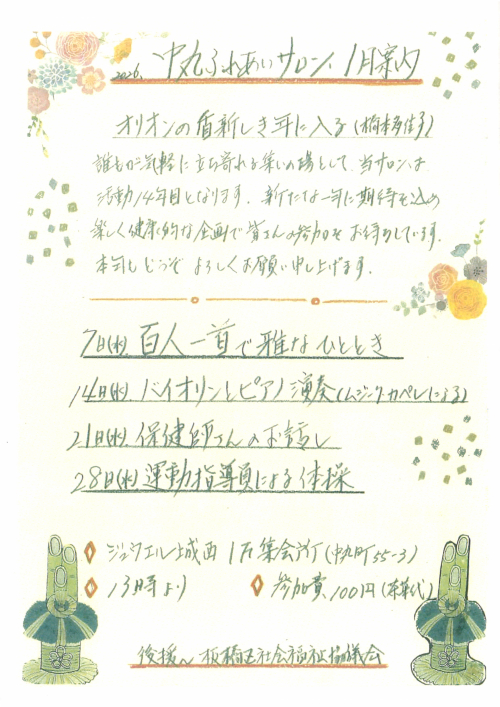 2026. 中丸ふれあいサロン 1月案内
オリオンの盾新しき年に入る(橋本多佳子)
誰もが気軽に立ち寄れる集いの場として、当サロンは
活動14年目となります。新たな一年に期待を込め
楽しく健康的な企画で皆さんの参加をお待ちしています。
本年もどうぞよろしくお願い申し上げます。
7日(水) 百人一首で雅なひととき
14日(水) バイオリンとピアノ演奏(ムジーク・カペレによる)
21日(水) 保健師さんのお話し
28日(水) 運動指導員による体操
ジュウエル城西 1F集会所(中丸町55-3)
13時より 参加費 100円(茶菓代)
後援〜板橋区社会福祉協議会